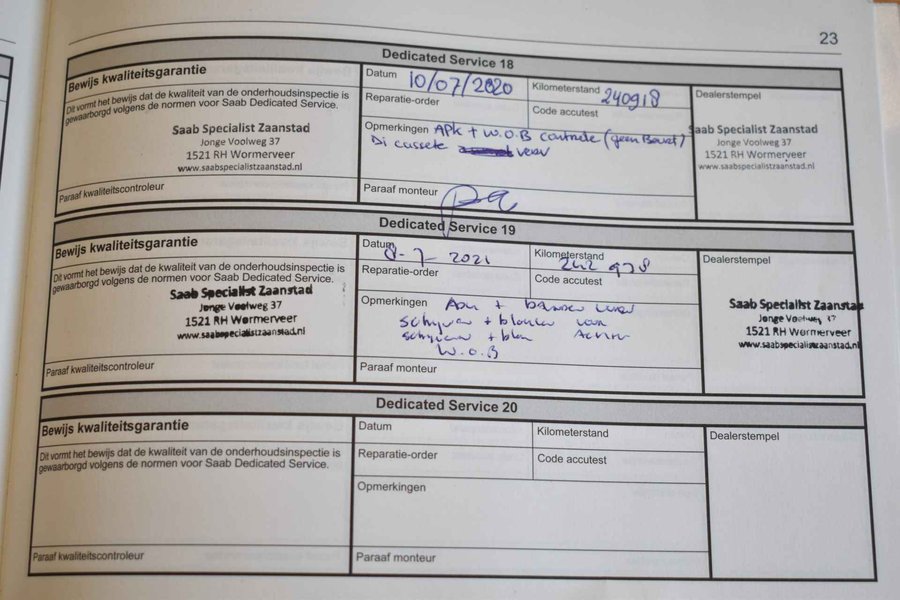 23
Dedicated Service 18
Bewijs kwaliteitsgarantie
Dit vormt het bewijs dat de kwaliteit van de onderhoudsinspectie is
gewaarborgd volgens de normen voor Saab Dedicated Service.
Saab Specialist Zaanstad
Jonge Voolweg 37
1521 RH Wormerveer
www.saabspecialistzaanstad.nl
Paraaf kwaliteitscontroleur
Datum 10/07/2020
Kilometerstand 240918
Reparatie-order
Code accutest
Opmerkingen APK + W.O.B controle (geen Beurt)
Di cassete verv
Paraaf monteur
Dealerstempel
Saab Specialist Zaanstad
Jonge Voolweg 37
1521 RH Wormerveer
www.saabspecialistzaanstad.nl
Dedicated Service 19
Bewijs kwaliteitsgarantie
Dit vormt het bewijs dat de kwaliteit van de onderhoudsinspectie is
gewaarborgd volgens de normen voor Saab Dedicated Service.
Saab Specialist Zaanstad
Jonge Voolweg 37
1521 RH Wormerveer
www.saabspecialistzaanstad.nl
Paraaf kwaliteitscontroleur
Datum 8-7-2021
Kilometerstand 242 978
Reparatie-order
Code accutest
Opmerkingen APK + banden
schijven + blokken voor
schijven + blok
W.O.B
Paraaf monteur
Dealerstempel
Saab Specialist Zaanstad
Jonge Voolweg 37
1521 RH Wormerveer
www.saabspecialistzaanstad.nl
Dedicated Service 20
Bewijs kwaliteitsgarantie
Dit vormt het bewijs dat de kwaliteit van de onderhoudsinspectie is
gewaarborgd volgens de normen voor Saab Dedicated Service.
Paraaf kwaliteitscontroleur
Datum
Kilometerstand
Reparatie-order
Code accutest
Opmerkingen
Paraaf monteur
Dealerstempel